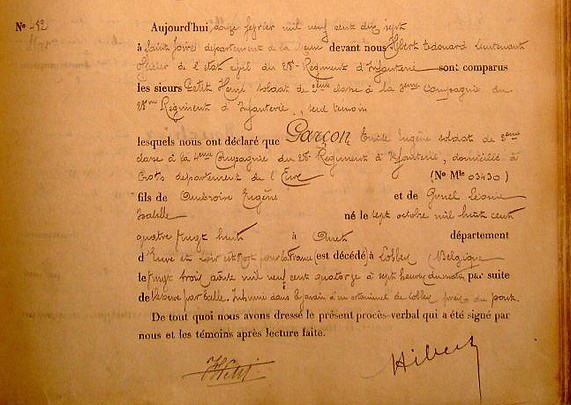 N° 42
Aujourd'hui douze février mil neuf cent dix sept
à Saint Joire département de la Meuse devant nous Hibert Edouard lieutenant
officier de l'état civil du 28e Régiment d'Infanterie sont comparus
les sieurs Petit Henri soldat de 2ème classe à la Compagnie du
28ème Régiment d'Infanterie, seul témoin
lesquels nous ont déclaré que Garçon Emile Eugène soldat de 2ème
classe à la Compagnie du 28e Régiment d'Infanterie, domicilié à
Crots département de l'Eure (No Mle 03430)
fils de Ambroise Eugène et de Leonie
Isabelle né le sept octobre mil huit cent
quatre vingt huit à Anet département
d'Eure et Loir est Mort pour la France (est décédé) à Lobbes (Belgique)
le vingt trois août mil neuf cent quatorze à sept heures du matin par suite
de blessure par balle. Inhumé dans le de Lobbes près du pont.
De tout quoi nous avons dressé le présent procès-verbal qui a été signé par
nous et les témoins après lecture faite.
HPetit
Hibert